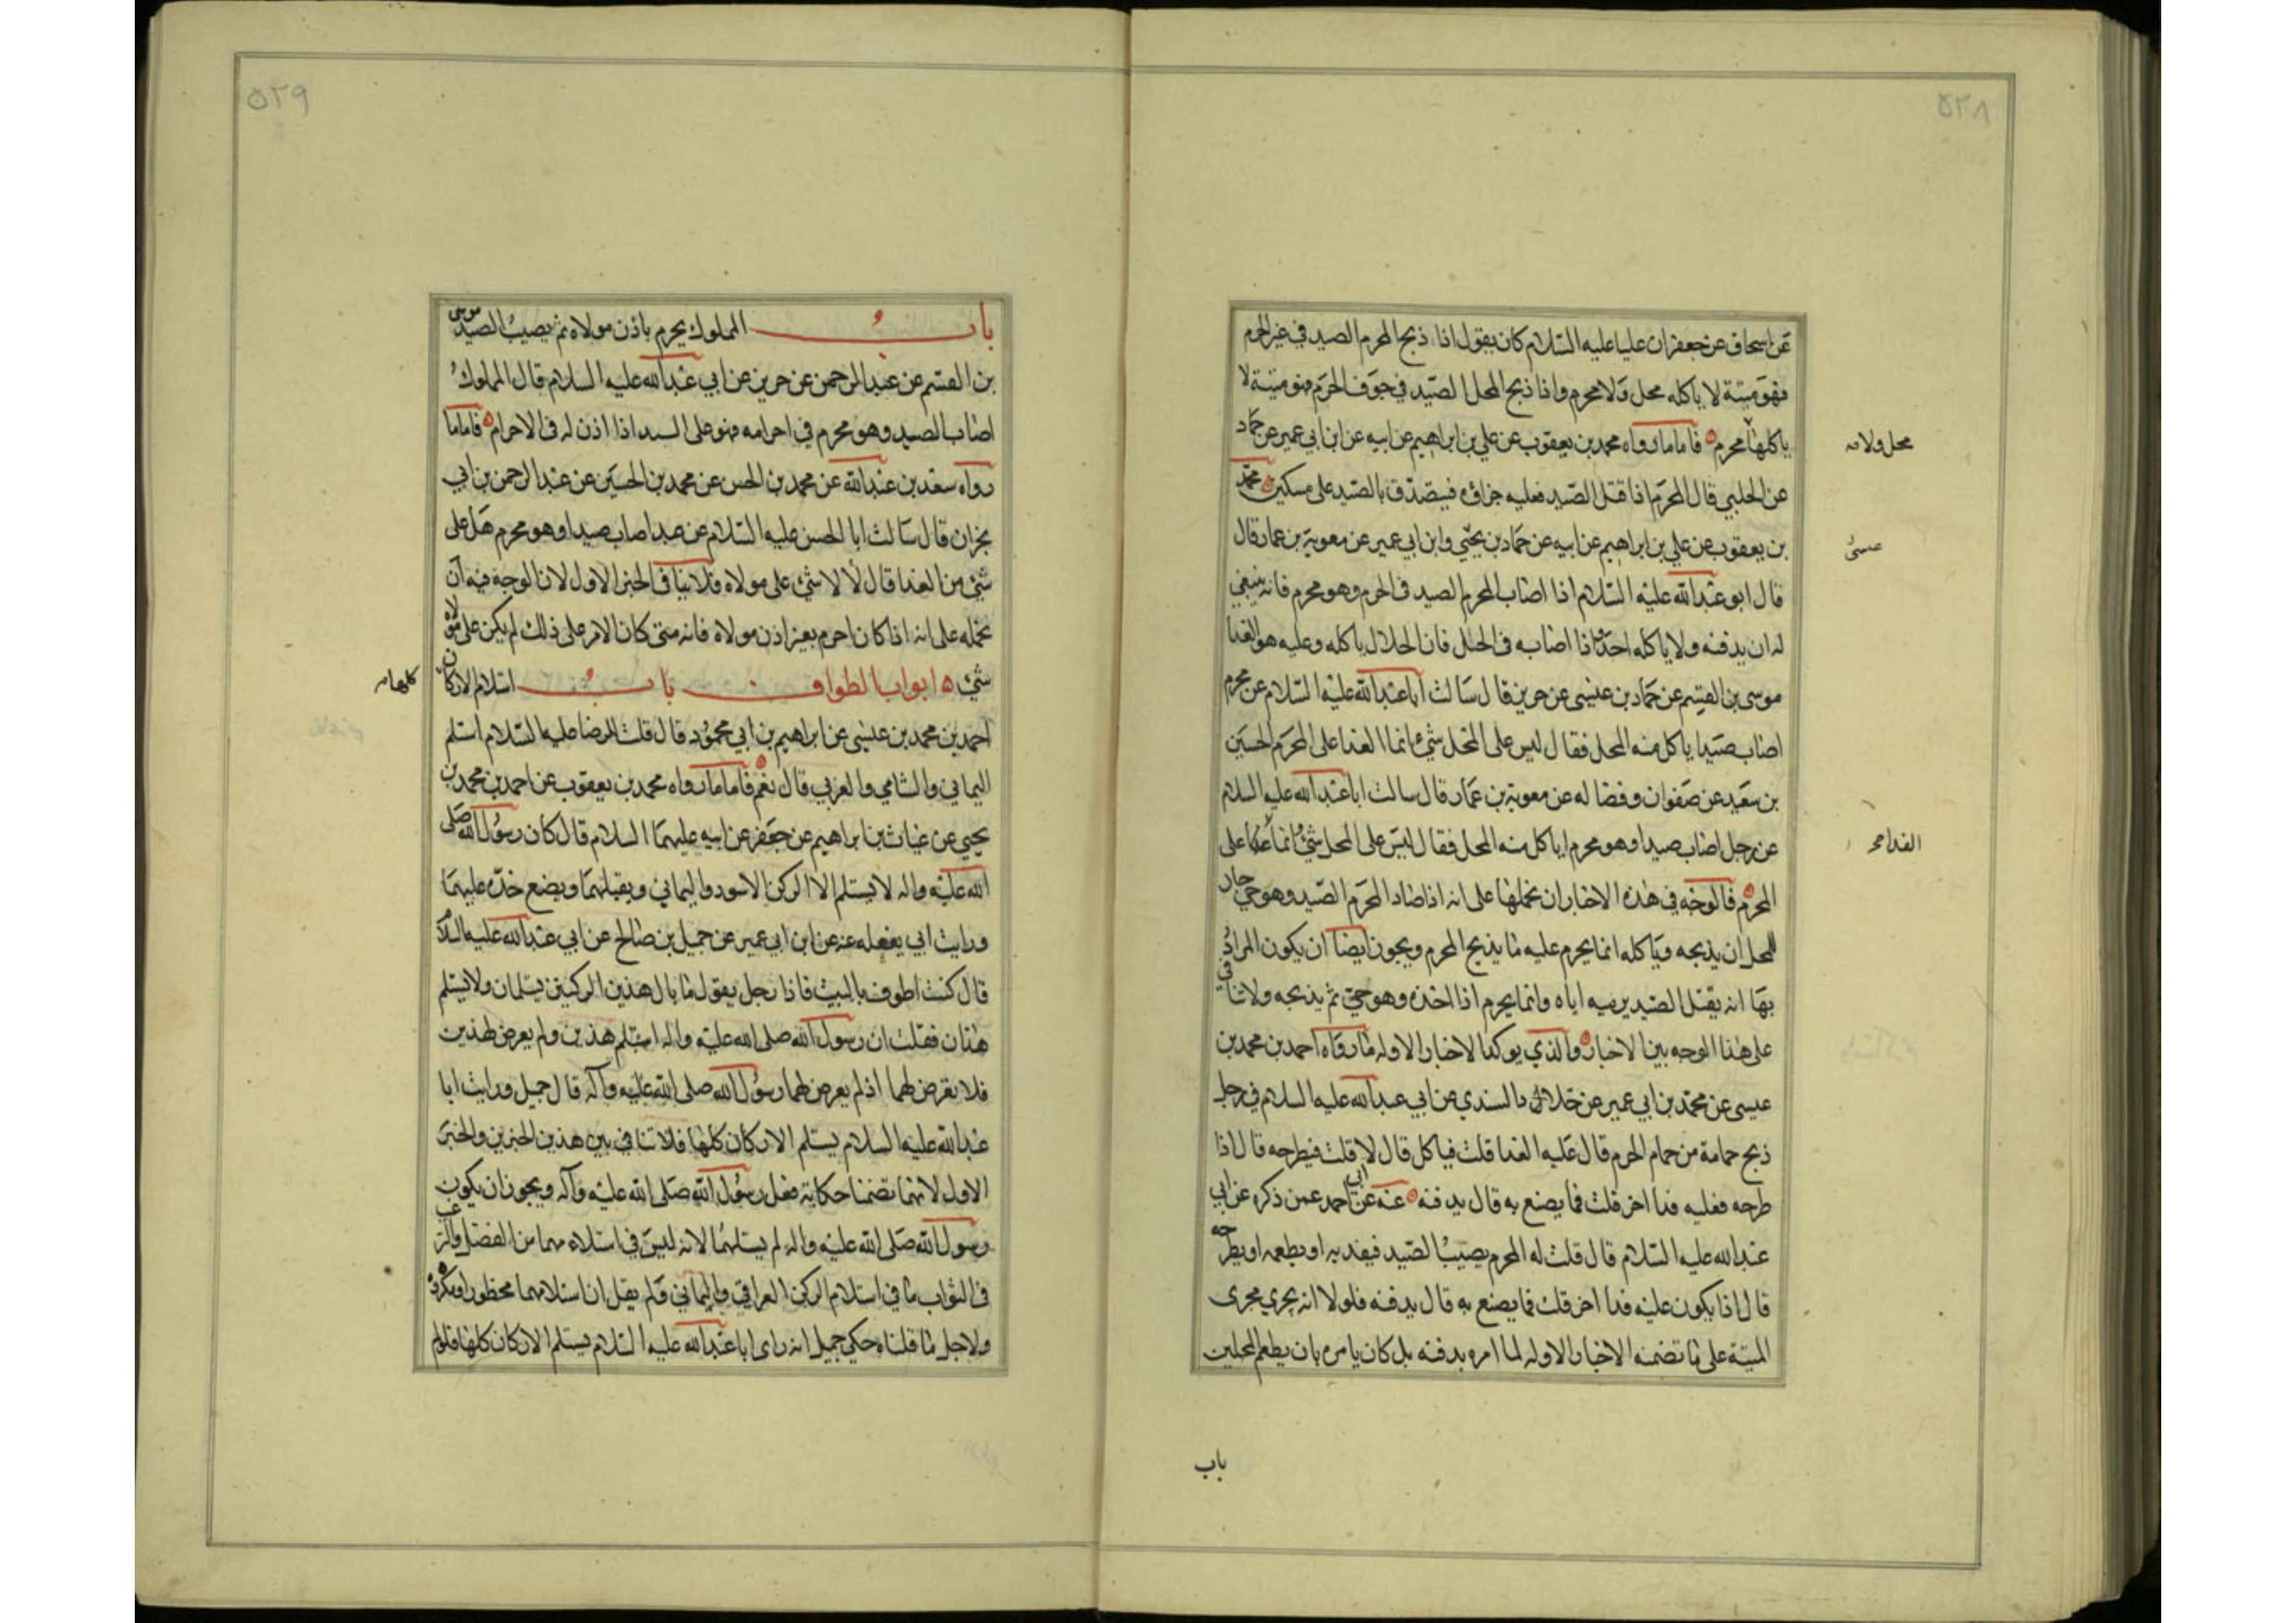 ٥٢٨
عن اسحاق عن جعفر ان عليا عليه السلام كان يقول اذا ذبح المحرم الصيد في غير الحرم
فهو ميتة لا ياكله محل ولا محرم واذا ذبح المحل الصيد في جوف الحرم فهو ميتة لا
ياكلها محرم فاما ما رواه محمد بن يعقوب عن علي بن ابراهيم عن ابيه عن ابن ابي عمير عن حماد
محل ولا
عن الحلبي قال المحرم اذا قتل الصيد فعليه جزاؤه فيتصدق بالصيد على مسكين محمد
بن يعقوب عن علي بن ابراهيم عن ابيه عن حماد بن يحيى وابن ابي عمير عن معوية بن عمار قال
عيسى
قال ابو عبد الله عليه السلام اذا اصاب المحرم الصيد في الحرم وهو محرم فانه ينبغي
له ان يدفنه ولا ياكله احد واذا اصابه في الحل فان الحلال ياكله وعليه هو الفدا
موسى بن القسم عن حماد بن عيسى عن حريز قال سالت ابا عبد الله عليه السلام عن محرم
اصاب صيدا ياكل منه المحل فقال ليس على المحل شئ انما الفدا على المحرم الحسين
بن سعيد عن صفوان وفضاله عن معوية بن عمار قال سالت ابا عبد الله عليه السلام
عن رجل اصاب صيدا وهو محرم اياكل منه المحل فقال ليس على المحل شئ انما على
الفدا
المحرم فالوجه في هذه الاخبار ان نحملها على انه اذا صاد المحرم الصيد وهو حي جاز
للمحل ان يذبحه وياكله انما يحرم عليه ما يذبح المحرم ويجوز ايضا ان يكون المراد
بها انه يقتل الصيد برميه اياه وانما يحرم اذا اخذه وهو حي ثم يذبحه ولا تنافي
على هذا الوجه بين الاخبار والذي يوكد الاخبار الاوله ما رواه احمد بن محمد بن
عيسى عن محمد بن ابي عمير عن خلاد السندي عن ابي عبد الله عليه السلام في رجل
ذبح حمامة من حمام الحرم قال عليه الفدا قلت فياكل قال لا قلت فيطرحه قال اذا
طرحه فعليه فدا اخر قلت فما يصنع به قال يدفنه عنه عن ابي احمد عمن ذكره عن ابي
عبد الله عليه السلام قال قلت له المحرم يصيب الصيد فيفديه او يطعمه او يطرحه
قال اذا يكون عليه فدا اخر قلت فما يصنع به قال يدفنه فلولا انه يجري مجرى
الميتة على ما تضمنه الاخبار الاوله لما امره بدفنه بل كان يامره بان يطعم المحلين
باب
٥٢٩
باب المملوك يحرم باذن مولاه ثم يصيب الصيد موسى
بن القسم عن عبد الرحمن عن حريز عن ابي عبد الله عليه السلام قال المملوك
اصاب الصيد وهو محرم في احرامه فهو على السيد اذا اذن له في الاحرام فاما ما
رواه سعد بن عبد الله عن محمد بن الحسن عن محمد بن الحسين عن عبد الرحمن بن ابي
نجران قال سالت ابا الحسن عليه السلام عن عبد اصاب صيدا وهو محرم هل على
شئ من الفدا قال لا لا شئ على مولاه فلا ينافي الخبر الاول لان الوجه فيه ان
نحمله على انه اذا كان احرم بغير اذن مولاه فانه متى كان الامر على ذلك لم يكن على مولاه
شئ ابواب الطواف باب استلام الاركان
كلها
احمد بن محمد بن عيسى عن ابراهيم بن ابي محمود قال قلت للرضا عليه السلام استلم
اليماني والشامي والغربي قال نعم فاما ما رواه محمد بن يعقوب عن احمد بن محمد بن
يحيى عن غياث بن ابراهيم عن جعفر عن ابيه عليهما السلام قال كان رسول الله صلى
الله عليه واله لا يستلم الا الركن الاسود واليماني ويقبلهما ويضع خده عليهما
ورايت ابي يفعله عنه عن ابن ابي عمير عن جميل بن صالح عن ابي عبد الله عليه السلام
قال كنت اطوف بالبيت فاذا رجل يقول ما بال هذين الركنين يستلمان ولا يستلم
هذان فقلت ان رسول الله صلى الله عليه واله استلم هذين ولم يعرض لهذين
فلا تعرض لهما اذ لم يعرض لهما رسول الله صلى الله عليه وآله قال جميل ورايت ابا
عبد الله عليه السلام يستلم الاركان كلها فلا تنافي بين هذين الخبرين والخبر
الاول لانهما تضمنا حكاية فعل رسول الله صلى الله عليه وآله ويجوز ان يكون
رسول الله صلى الله عليه واله لم يستلمهما لانه ليس في استلامهما من الفضل والترغيب
في الثواب ما في استلام الركن العراقي واليماني ولم يقل ان استلامهما محظور او مكروه
ولاجل ما قلناه حكى جميل انه راى ابا عبد الله عليه السلام يستلم الاركان كلها فلو لم